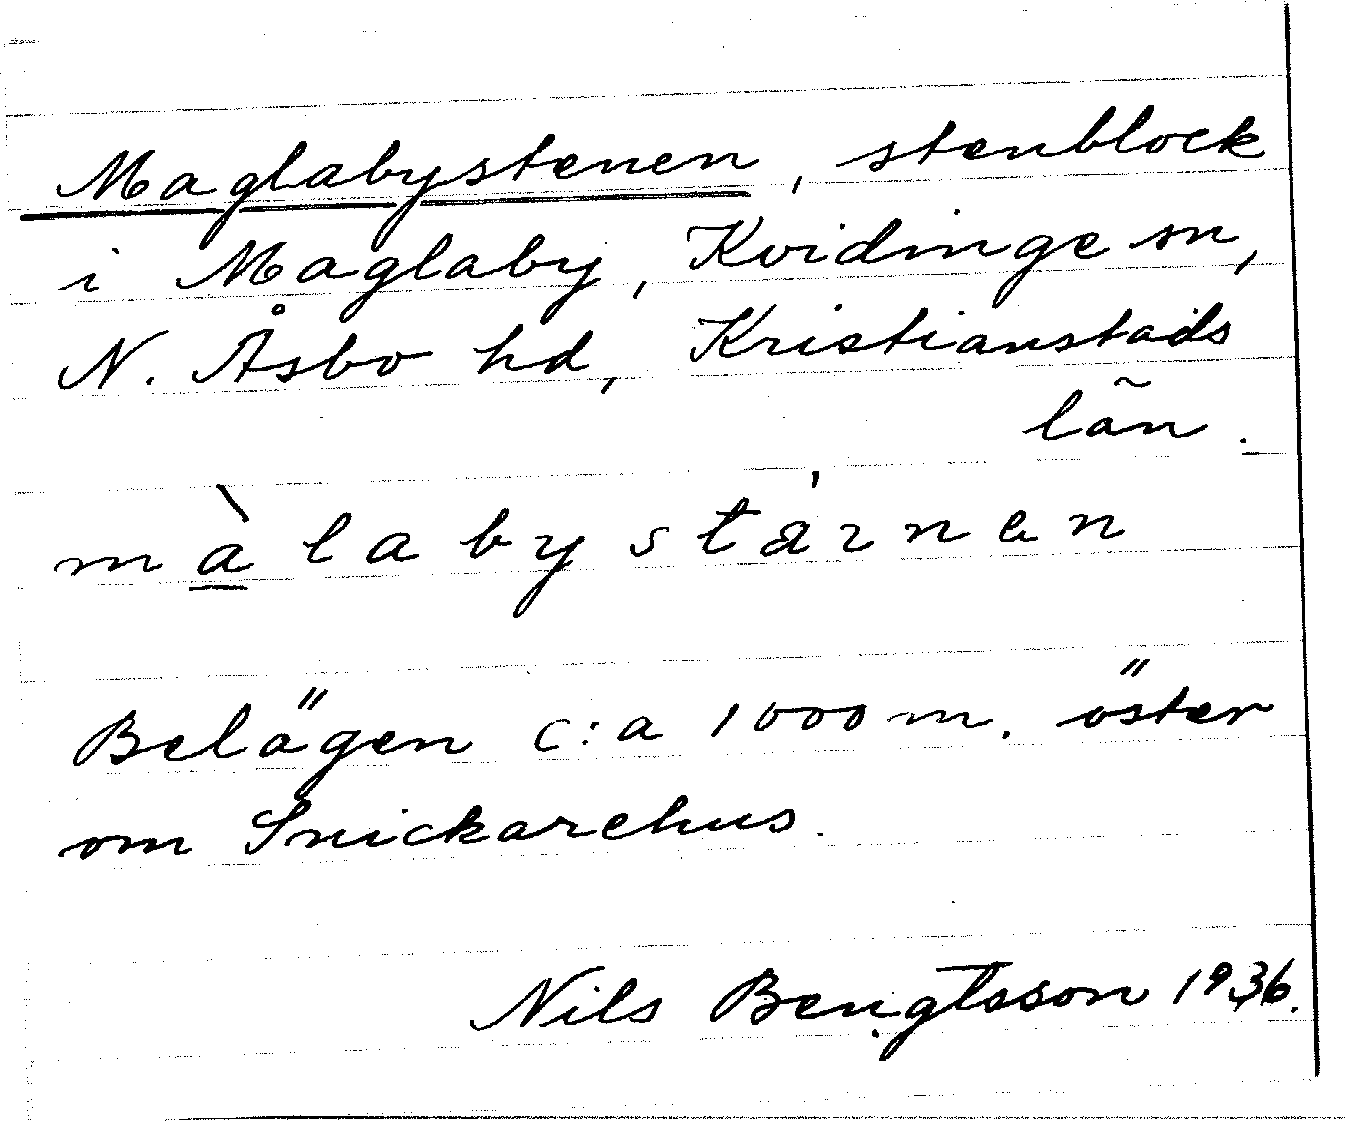 Maglabystenen, stenblock
i Maglaby, Kvidinge sn,
N. Åsbo hd, Kristianstads
län.
màlabystáinen
Belägen c:a 1000 m. öster
om Snickarehus.
Nils Bengtsson 1936.